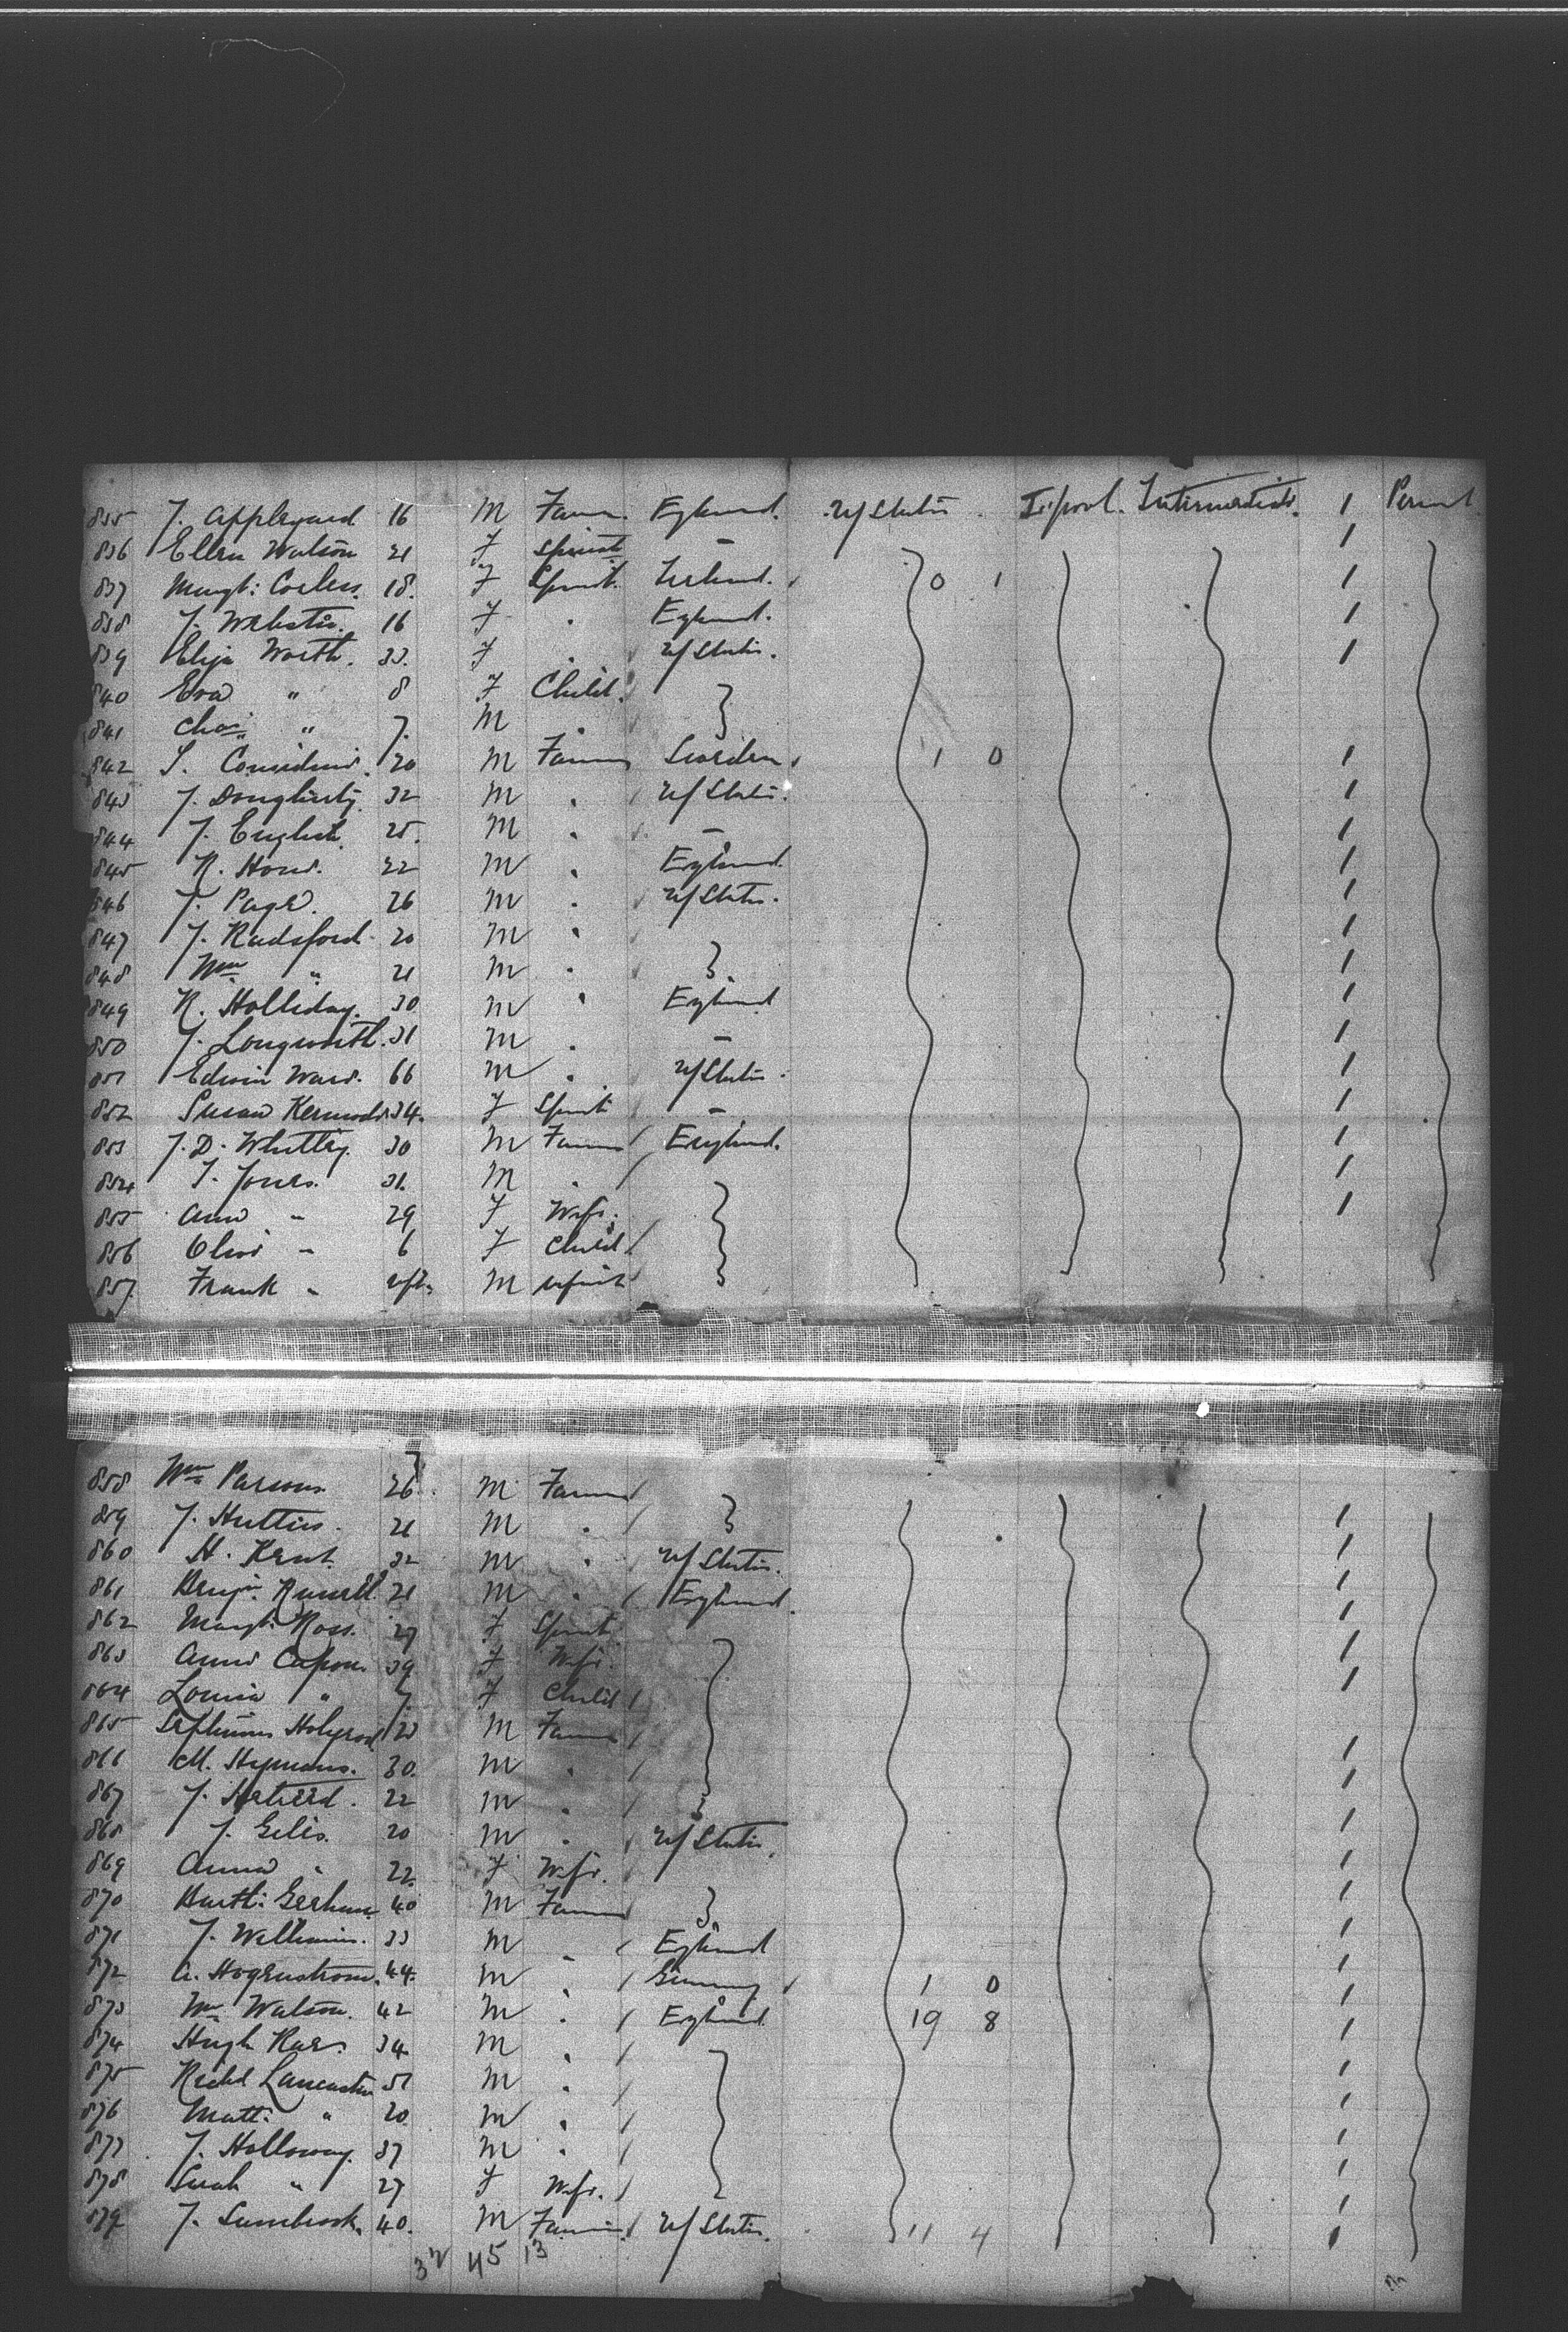 835 J. Appleyard 16 M Farmer England. U/States L'pool. Intermediate. 1 Permt
836 Ellen Watson 21 F Spinst — 1
837 Margt: Corless. 18. F Spinst. Ireland. 0 1 1
838 J. Webster. 16 F . England. 1
839 Eliza Worth. 33. F . U/States. 1
840 Eva " 8 F Child.
841 Chas " 7. M .
842 S. 20 M Farmer Sweden 1 0 1
843 J. Dougherty. 32 M . U/States. 1
844 J. English. 25. M . — 1
845 R. Howe. 22 M . England. 1
846 J. Page. 26 M . U/States. 1
847 J. Radsford. 20 M . 1
848 Wm " 21 M . 1
849 R. Holliday. 30 M . England 1
850 J. Longworth. 31 M . — 1
851 Edwin Ward. 66 M . U/States. 1
852 Susan Kermode 34. F Spinst — 1
853 J. D. Whitley. 30 M Farmer England. 1
854 J. Jones. 31. M . 1
855 Ann " 29 F Wife. 1
856 " 6 F Child
857 Frank " inft. M infant
858 Wm Parsons 26. M Farmer
859 J. 21 M . 1
860 H. Kent. 32 M . U/States. 1
861 Benjn. Russell 21 M . England. 1
862 Margt. Ross. 27 F Spinst 1
863 Annie Capon. 39 F Wife. 1
864 Louisa " 7. F Child
865 Septimus Holyroyd M Farmer 1
866 M. Heymans. 30. M . 1
867 J. 22 M . 1
868 J. Giles. 20 M . U/States. 1
869 Anna " 22. F Wife. 1
870 Barth: 40 M Farmer 1
871 J. Williams. 33 M . England 1
872 A. Hogenstrom. 44. M . Germany 1 0 1
873 Wm Watson. 42 M . England 19 8 1
874 Hugh 34 M . 1
875 Richd Lancaster 51 M . 1
876 Matt. " 20. M . 1
877 J. Holloway. 37 M . 1
878 Sarah " 27 F Wife. 1
879 J. 40. M Farmer U/States. 11 4 1
32 45 13